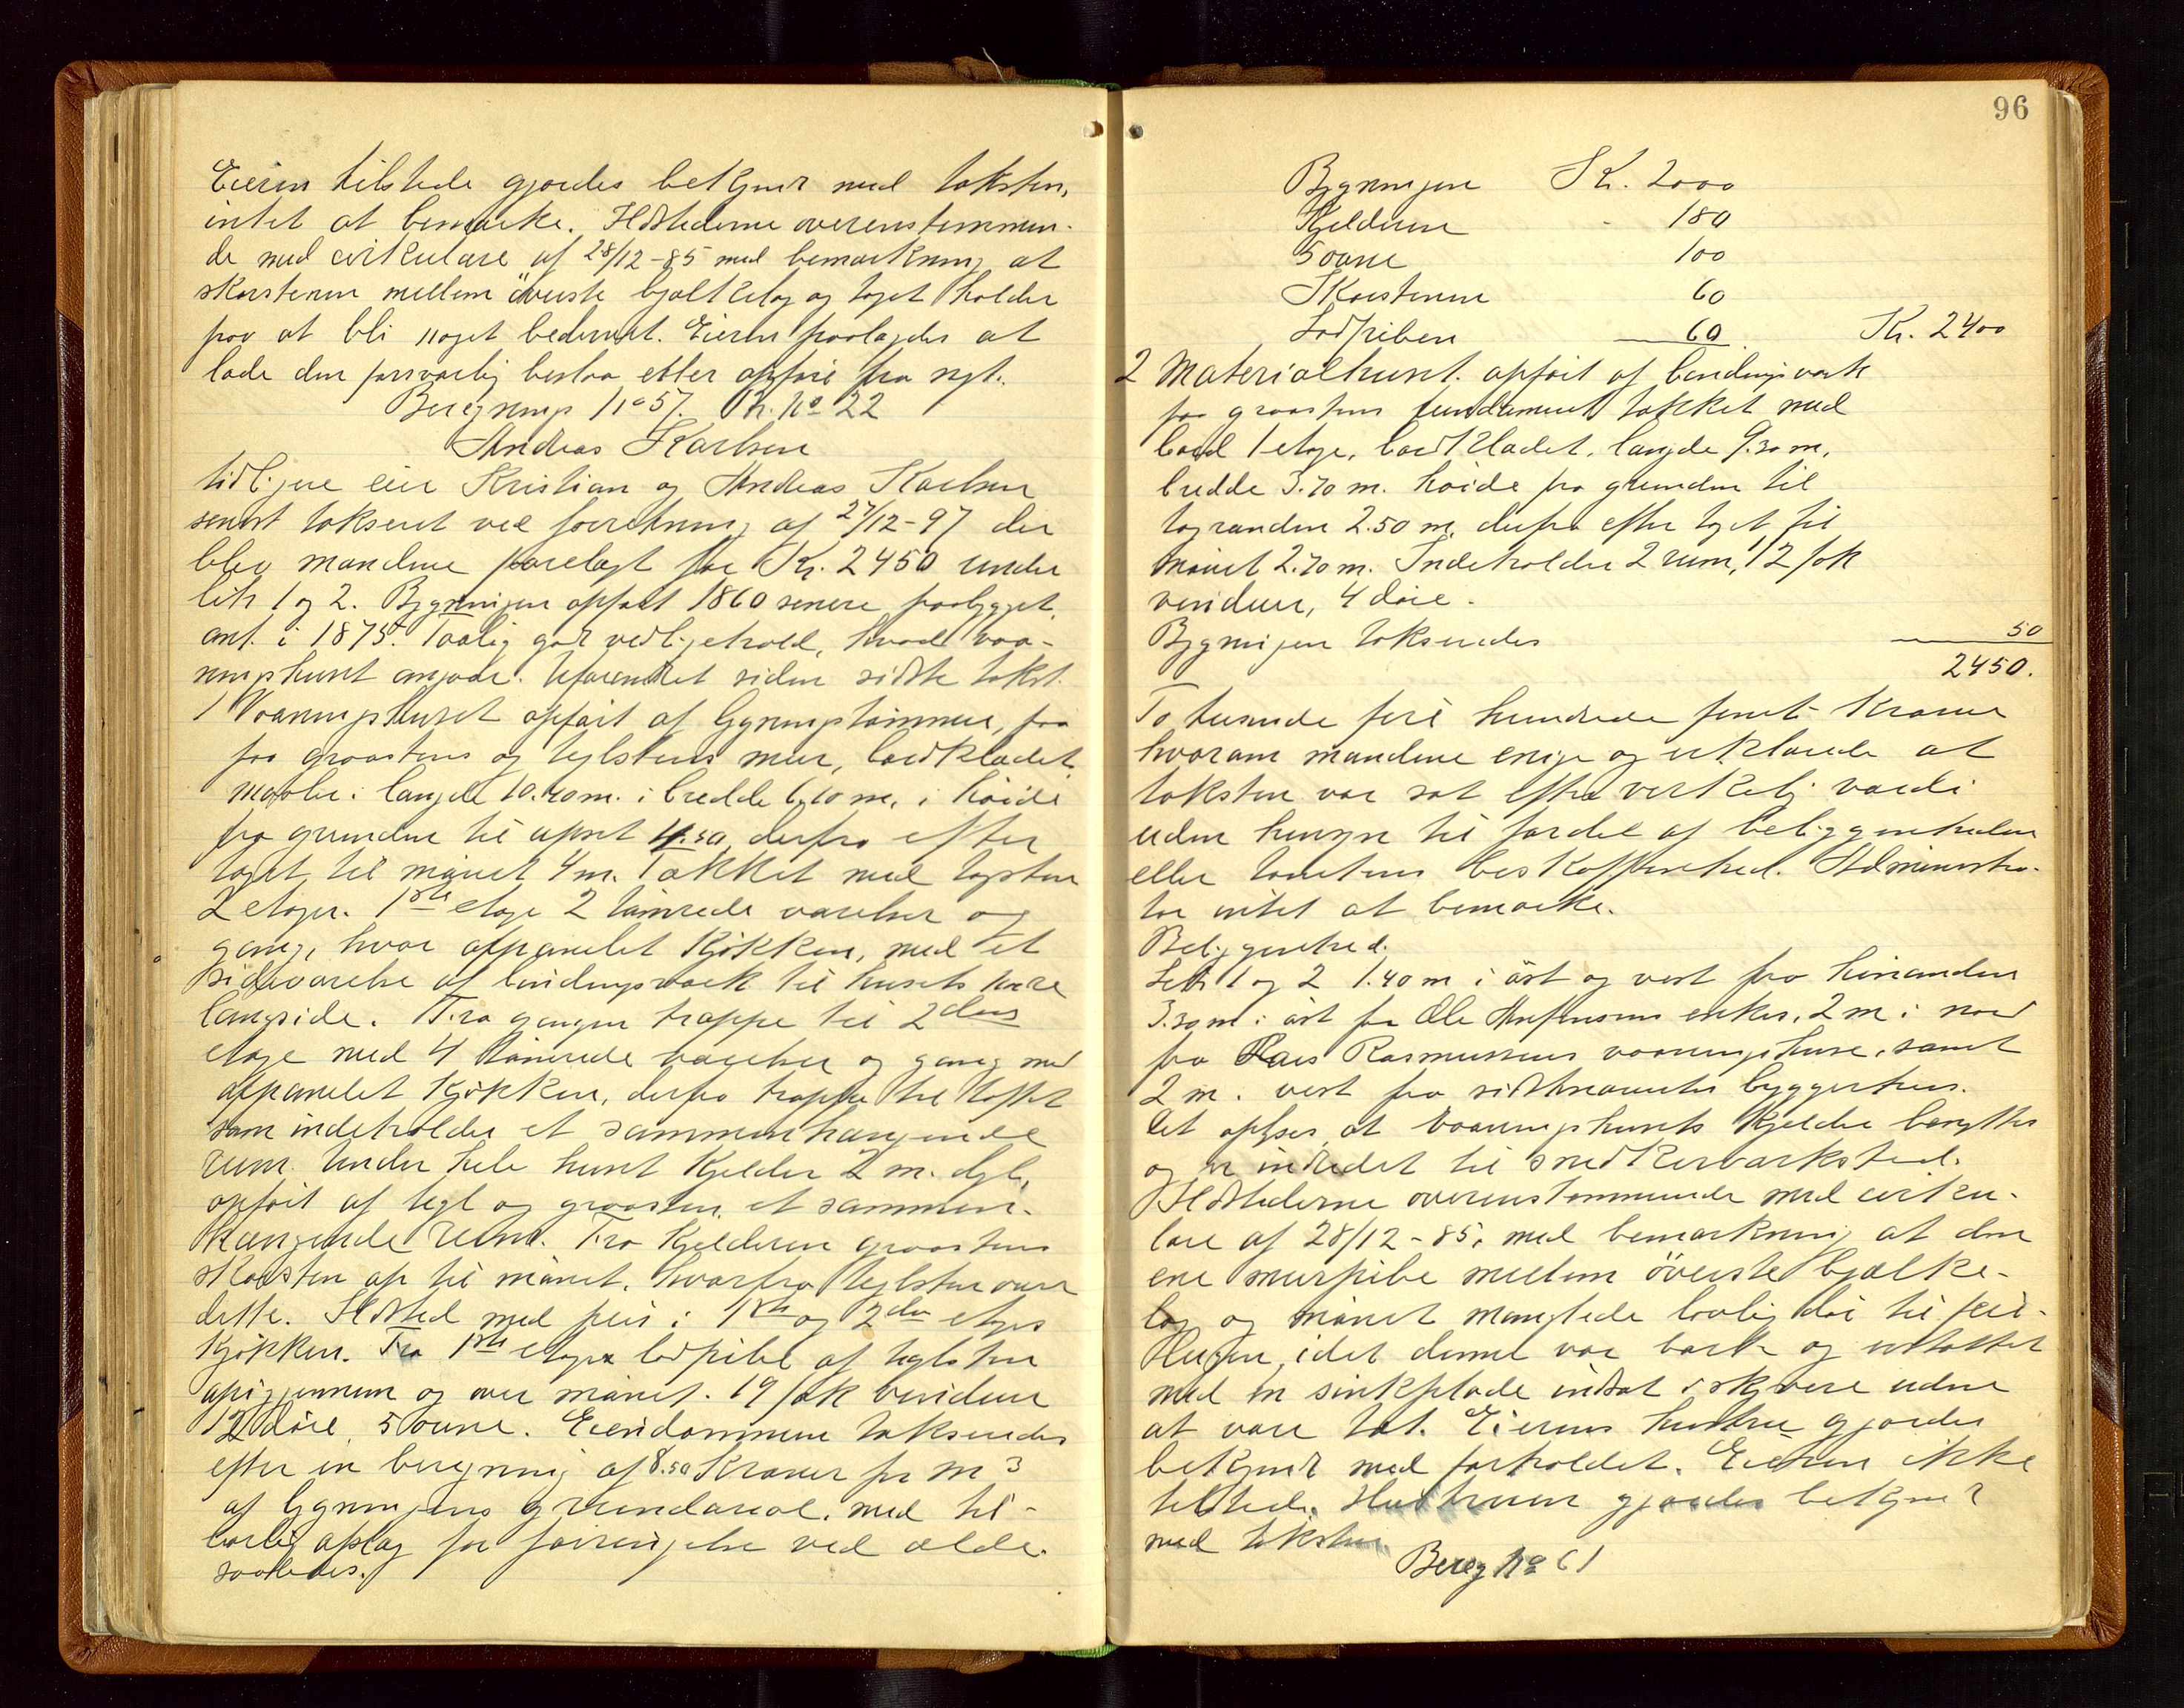 Eieren tilstede gjordes bekjent med taksten,
intet at bemærke. Ildstederne overenstemmen-
de med cirkulære af 28/12-85 med bemærkning at
skorstenen mellem överste bjælkelag og taget holder
paa at bli noget bedervet. Eieren paalagdes at
lade den forsvarlig beslaa eller opføre fra nyt.
Beregnings No 57. Br. No 22
Andreas Karlsen
tidligere eier Kristian og Andreas Karlsen
senest takseret ved forretning af 27/12-97 der
blev mændene forelagt for Kr. 2450 under
litr 1 og 2. Bygningen opført 1860 senere paabygget
ant. i 1875. Taalig god vedligehold, hvad vaa-
ningshuset angaar. Uforandret siden sidste takst.
1 Vaaningshuset opført af bygningstømmer, paa
paa graastens og teglstens mur, bordklædet
maaler i længde 10.40 m. i bredde 6.10 m. i høide
fra grunden til opset 4.50 derfra efter
taget til mønet 4 m. Tækket med tagsten
2 etager. 1ste etage 2 tømrede værelser og
gang, hvor afpanelet kjökken, med et
sideværelse af bindingsværk til husets
langside. Fra gangen trappe til 2den
etage med 4 tømrede værelser og gang med
afpanelet kjökken, derfra trappe til loftet
som indeholder et sammenhængende
rum. Under hele huset kjelder 2 m. dyb,
opført af tegl og graasten, et sammen-
hængende rum. Fra kjelderen graastens
skorsten op til mønet, hvorfra teglsten over
dette. Ildsted med peis i 1ste og 2den etages
kjökken. Fra 1ste etage lodpibe af teglsten
op igjennem og over mønet. 19 fak vinduer
12 døre, 5 ovne. Eiendommene takseredes
efter en beregning af 8.50 Kroner pr m3
af bygningens grundareal, med til-
børlig afslag for foringelse ved ælde.
saaledes.
96
Bygningen Kr. 2000
Kjelderen 180
5 ovne 100
Skorstenen 60
Lodpiben 60 Kr. 2400
2 Materialhuset. opført af bindingsværk
paa graastens fundament takket med
bord 1 etage, bordklædet. længde 9.30 m,
bredde 3.70 m. høide fra grunden til
tagranden 2.50 m, derfra efter taget til
mønet 2.70 m. Indeholder 2 rum, 12 fak
vinduer, 4 døre.
Bygningen takseredes 50
2450.
To tusende fire hundrede femti Kroner
hvorom mændene enige og erklærede at
taksten var sat efter virkelig værdi
uden hensyn til fordel af beliggenheden
eller tomtens beskaffenhed. Administra-
tor intet at bemærke.
Beliggenhed.
Litr 1 og 2 1.40 m i øst og vest fra hinanden
3.30 m i øst fra Ole enkes, 2 m i nord
fra Lars Rasmussens vaaningshuse, samt
2 m. vest fra sidstnævntes bryggerhus.
Det oplyses at vaaningshusets kjelder benyttes
og er indredet til snedkerværksted.
Ildstederne overenstemmende med cirku-
lære af 28/12-85, med bemærkning at den
ene murpibe mellem överste bjælke-
lag og mønet manglede lovlig dør til feie-
hugen, idet denne var bark og erstattet
med en sinkplade indsat i skjvere uden
at være tæt. Eierens hustru gjordes
bekjendt med forholdet. Eieren ikke
tilstede. Hustruen gjordes bekjent
med taksten.
Bereg No 61